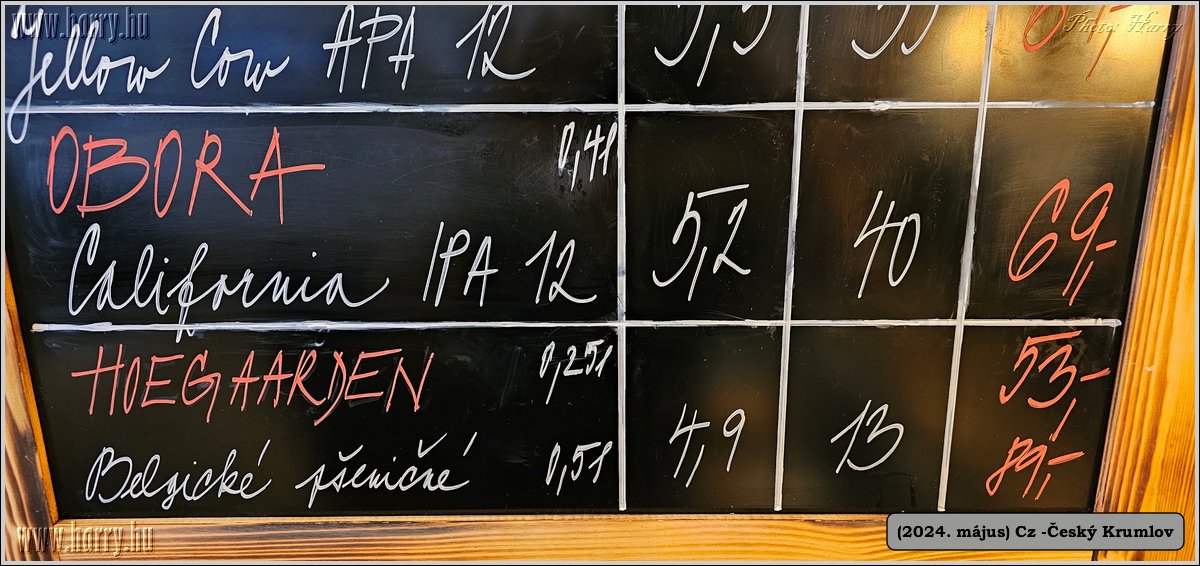 www.harry.hu
Photo: Harry
Yellow Cow APA 12
OBORA 0,4l
California IPA 12 5,2 40 69,-
HOEGAARDEN 0,25l 53,-
Belgické pšeničné 0,5l 4,9 13 89,-
www.harry.hu
(2024. május) Cz -Český Krumlov